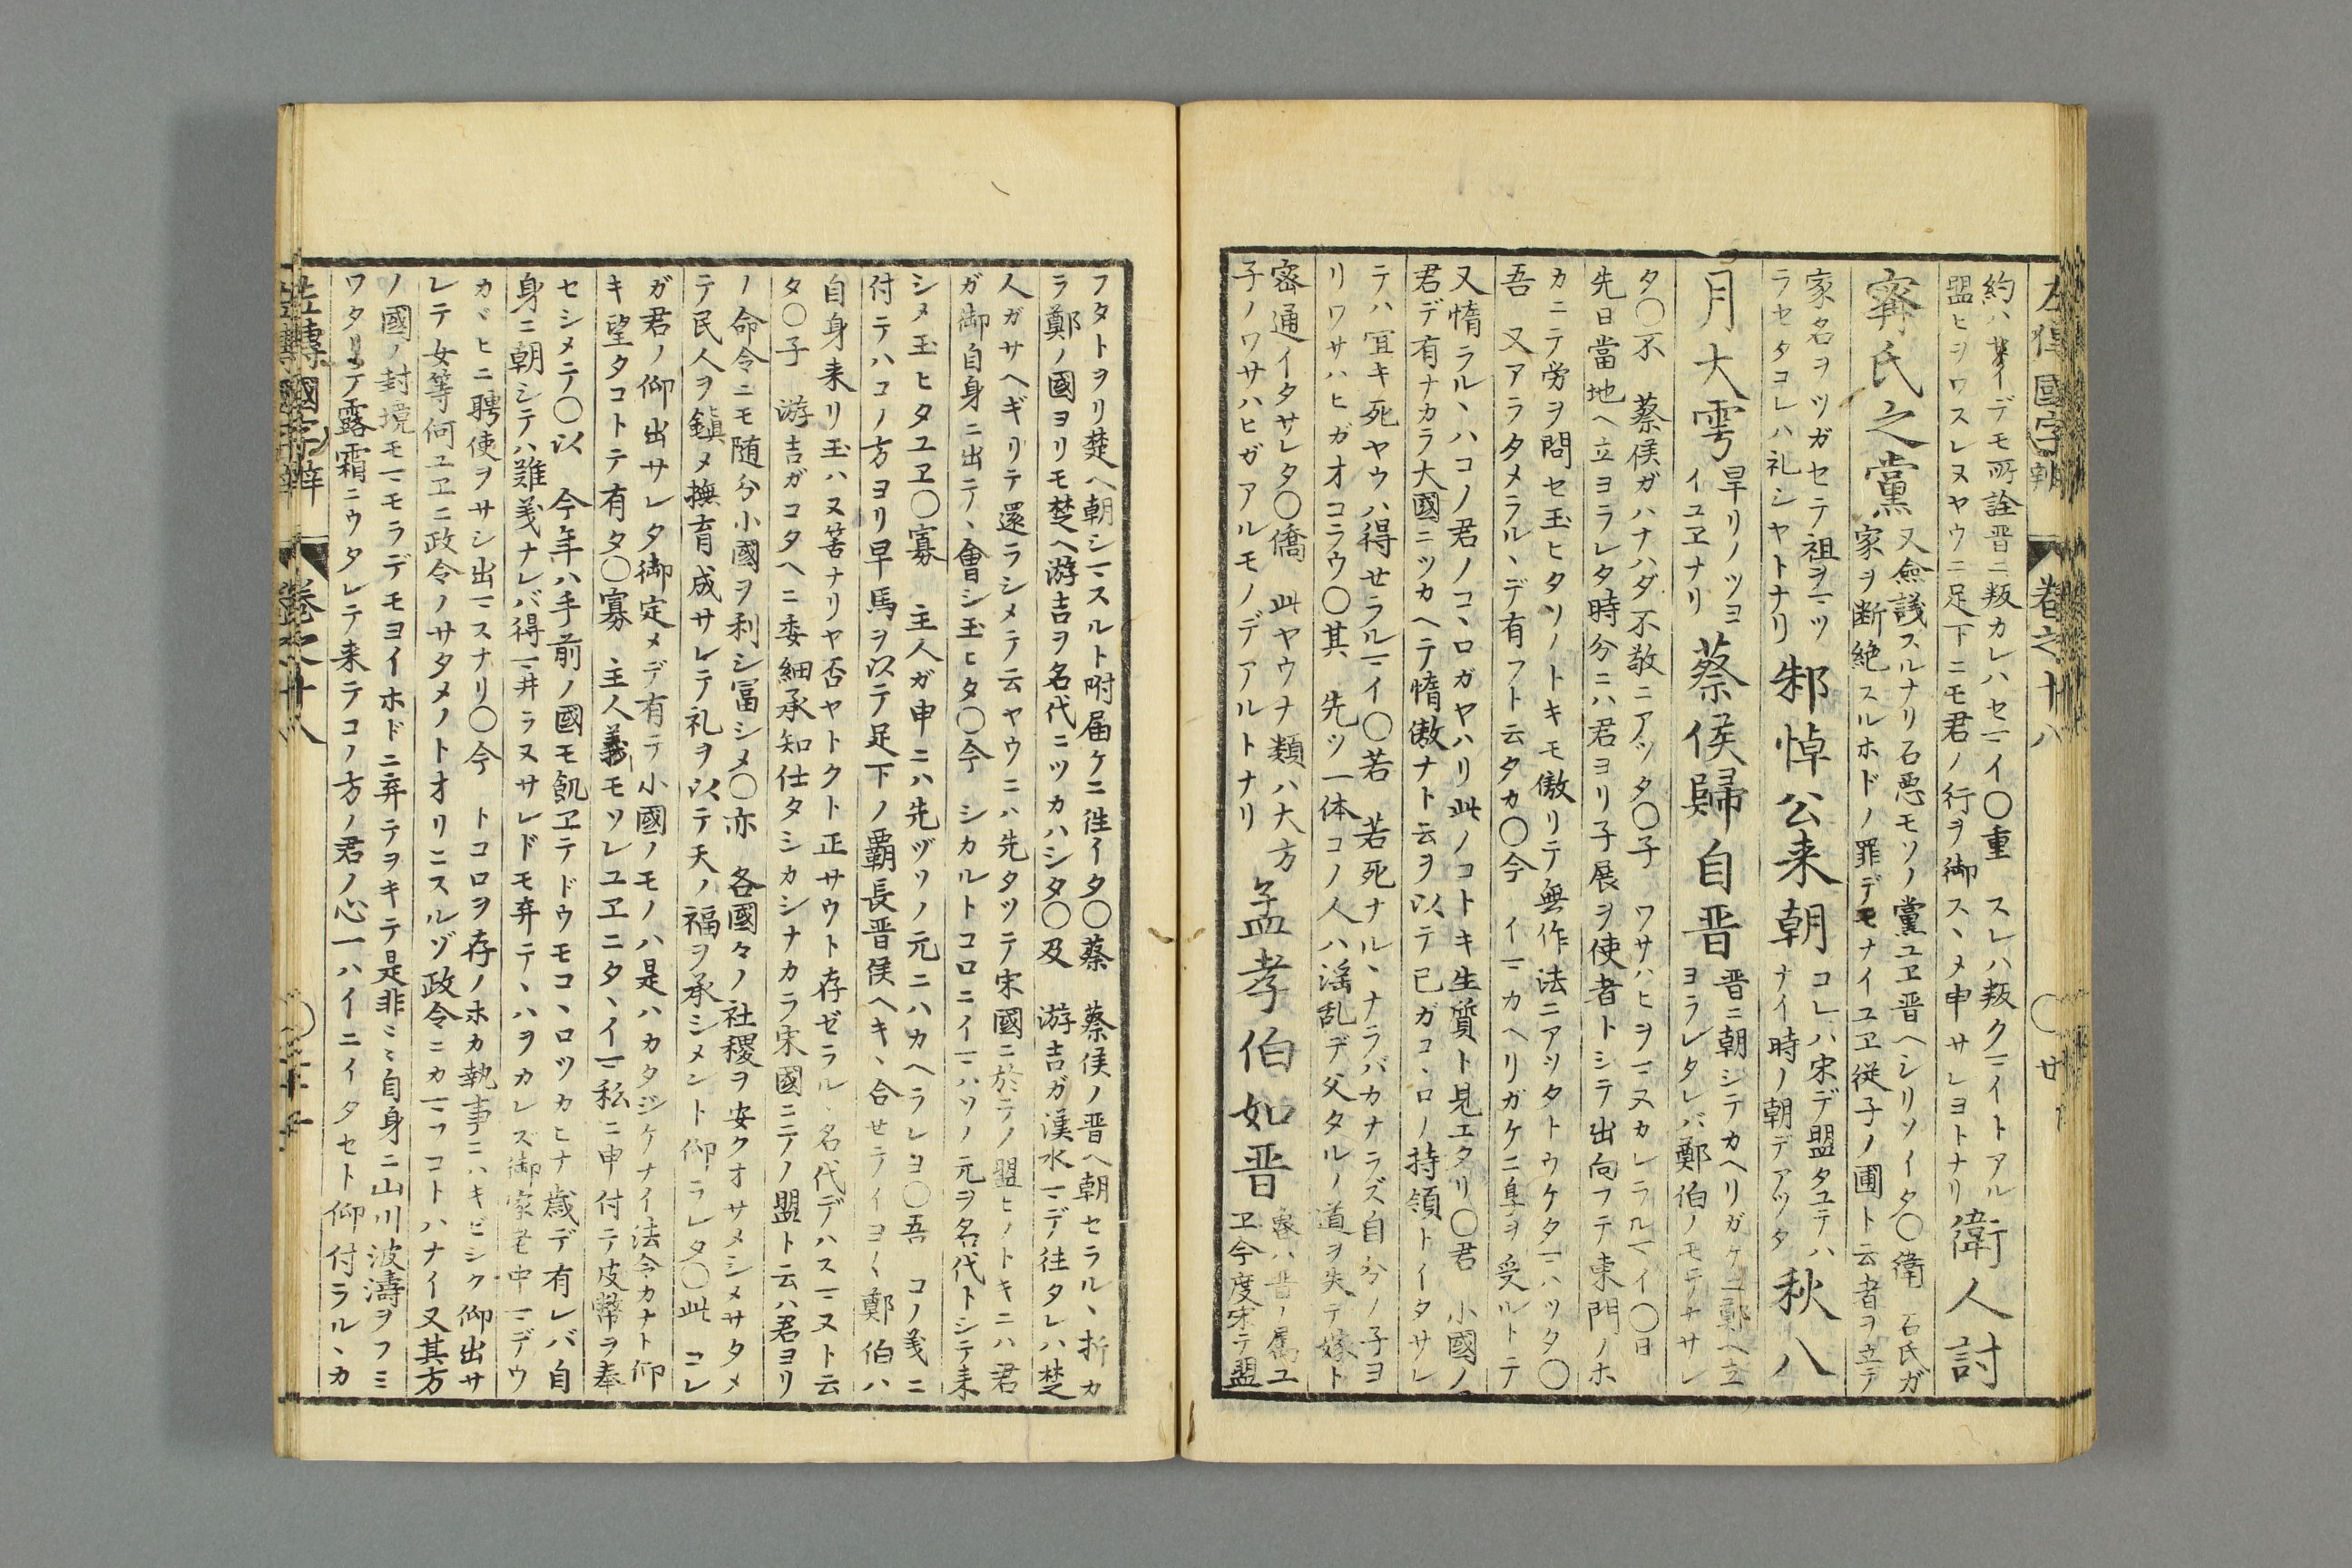 左傳國字辨 卷之十八 〇廿
約ハナイデモ所詮晋ニ叛カレハセマイ〇重 スレハ叛クマイトアル
盟ヒヲワスレヌヤウニ足下ニモ君ノ行ヲ御スヽメ申サレヨトナリ
衛人討
甯氏之黨
又僉議スルナリ石悪モソノ黨ユヱ晋ヘシリソイタ〇衛 石氏ガ
家ヲ断絶スルホドノ罪デモナイユヱ従子ノ圃ト云者ヲ立テ
家名ヲツガセテ祖ヲマツ
ラセタコレハ礼シヤトナリ
邾悼公来朝
コレハ宋デ盟タユテハ
ナイ時ノ朝デアツタ
秋八
月大雩
旱リノツヨ
イユヱナリ
蔡侯歸自晋
晋ニ朝シテカヘリガケニ鄭ヘ立
ヨラレタレバ鄭伯ノモテナサレ
タ〇不 蔡侯ガハナハダ不敬ニアツタ〇子 ワサハヒヲマヌカレラルマイ〇日
先日當地ヘ立ヨラレタ時分ニハ君ヨリ子展ヲ使者トシテ出向フテ東門ノホ
カニテ労ヲ問セ玉ヒタソノトキモ傲リテ無作法ニアツタトウケタマハツタ〇
吾 又アラタメラルヽデ有フト云タカ〇今 イマカヘリガケニ享ヲ受ルトテ
又惰ラルヽハコノ君ノコヽロガヤハリ此ノコトキ生質ト見エタリ〇君 小國ノ
君デ有ナカラ大國ニツカヘテ惰傲ナト云ヲ以テ已ガコヽロノ持領トイタサレ
テハ宜キ死ヤウハ得せラルマイ〇若 若死ナルヽナラバカナラズ自分ノ子ヨ
リワサハヒガオコラウ〇其 先ツ一体コノ人ハ滛乱デ父タルノ道ヲ失テ嫁ト
密通イタサレタ〇僑 此ヤウナ類ハ大方
子ノワサハヒガアルモノデアルトナリ
孟孝伯如晋
魯ハ晋ノ属ユ
ヱ今度宋テ盟
フタトヲリ楚ヘ朝シマスルト附届ケニ徃イタ〇蔡 蔡侯ノ晋ヘ朝セラルヽ折カ
ラ鄭ノ國ヨリモ楚ヘ游吉ヲ名代ニツカハシタ〇及 游吉ガ漢水マデ往タレハ楚
人ガサヘギリテ還ラシメテ云ヤウニハ先タツテ宋國ニ於テノ盟ヒノトキニハ君
ガ御自身ニ出テヽ會シ玉ヒタ〇今 シカルトコロニイマハソノ元ヲ名代トシテ来
シメ玉ヒタユヱ〇寡 主人ガ申ニハ先ヅソノ元ニハカヘラレヨ〇吾 コノ義ニ
付テハコノ方ヨリ早馬ヲ以テ足下ノ覇長晋侯ヘキヽ合せテイヨ〱鄭伯ハ
自身来リ玉ハヌ筈ナリヤ否ヤトクト正サウト存ゼラル 名代デハスマヌト云
タ〇子 游吉ガコタヘニ委細承知仕タシカシナカラ宋國ニテノ盟ト云ハ君ヨリ
ノ命令ニモ随分小國ヲ利シ冨シメ〇亦 各國々ノ社稷ヲ安クオサメシメサタメ
テ民人ヲ鎮メ撫育成サレテ礼ヲ以テ天ノ福ヲ承シメント仰ラレタ〇此 コレ
ガ君ノ仰出サレタ御定メデ有テ小國ノモノハ是ハカタジケナイ法令カナト仰
キ望タコトテ有タ〇寡 主人義モソレユヱニタヽイマ私ニ申付テ皮幣ヲ奉
セシメテ〇以 今年ハ手前ノ國モ飢ヱテドウモコヽロツカヒナ歳デ有レバ自
身ニ朝シテハ難義ナレバ得マ井ラヌサレドモ弃テヽハヲカレズ御家老中マデウ
カヾヒニ聘使ヲサシ出マスナリ〇今 トコロヲ存ノホカ執事ニハキビシク仰出サ
レテ女等何ユヱニ政令ノサタメノトオリニスルゾ政令ニカマフコトハナイ又其方
ノ國ノ封境モマモラデモヨイホドニ弃テヲキテ是非〻自身ニ山川波濤ヲフミ
ワタリテ露霜ニウタレテ来テコノ方ノ君ノ心一ハイニイタセト仰付ラルヽカ
左傳國字辨 卷之十八